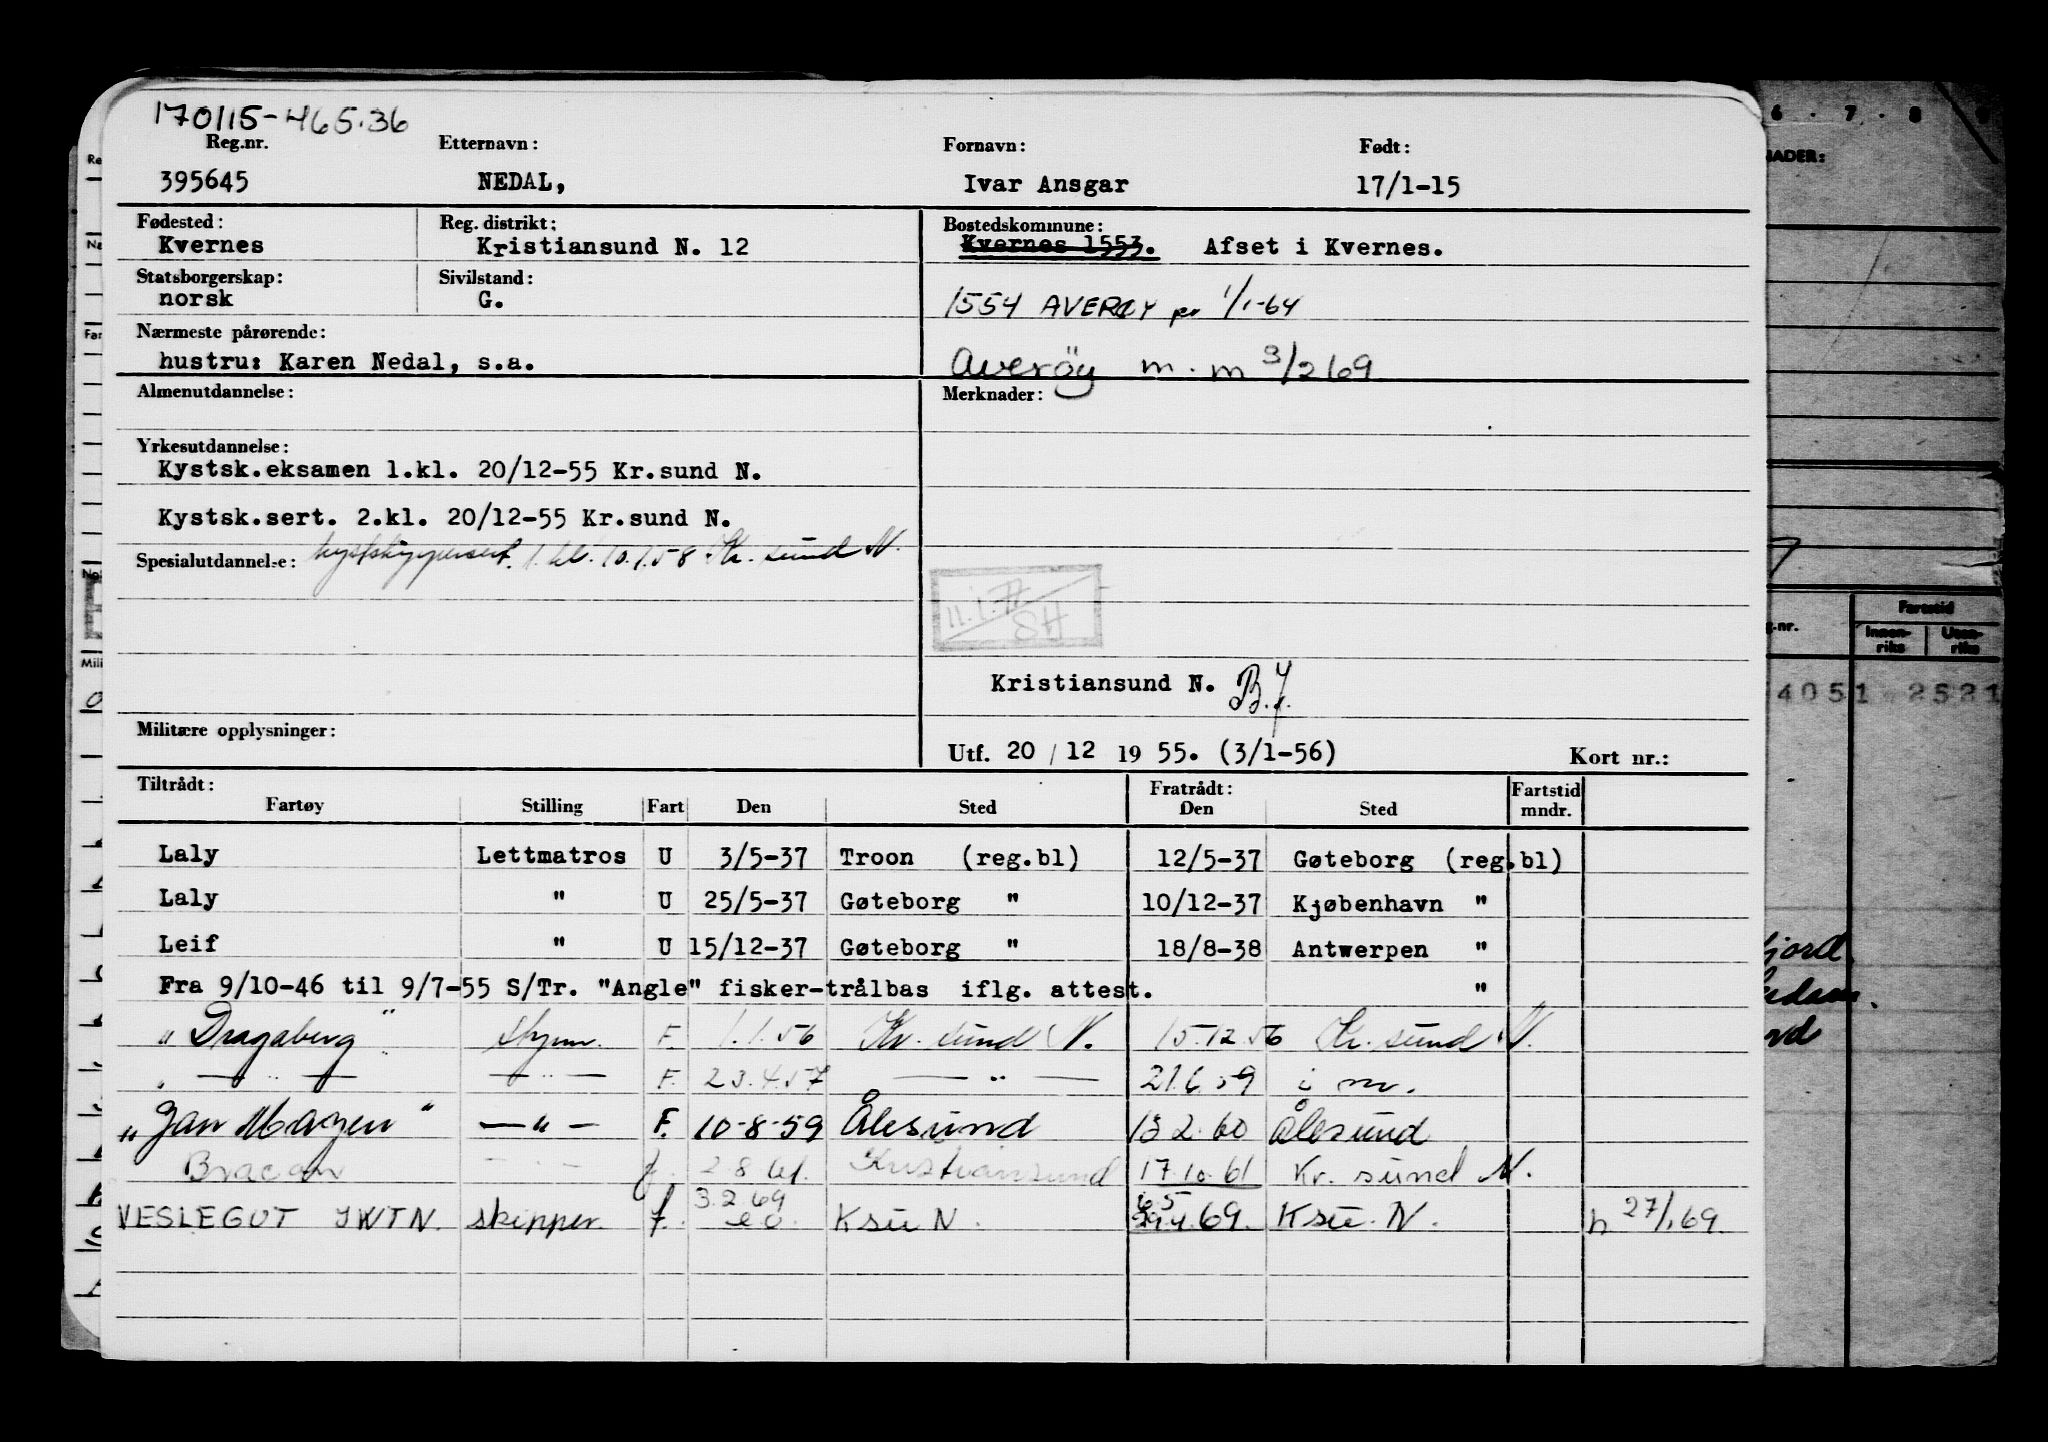 170115-465.36
Reg.nr. Etternavn: Fornavn: Født:
395645 NEDAL, Ivar Ansgar 17/1-15
Fødested: Reg. distrikt: Bostedskommune:
Kvernes Kristiansund N. 12 Kvernes 1553. Afset i Kvernes.
Statsborgerskap: Sivilstand:
norsk G. 1554 AVERØY pr 1/1-64
Nærmeste pårørende:
hustru: Karen Nedal, s.a. Averöy m.m 3/2 69
Almenutdannelse: Merknader:
Yrkesutdannelse:
Kystsk.eksamen 1.kl. 20/12-55 Kr.sund N.
Kystsk.sert. 2.kl. 20/12-55 Kr.sund N.
Spesialutdannelse: kystskippersert. 1. kl. 10.1.58 Kr. sund N.
SH
Kristiansund N. B.J.
Militære opplysninger:
Utf. 20 / 12 19 55. (3/1-56) Kort nr.:
Tiltrådt: Fratrådt: Fartstid
Fartøy Stilling Fart Den Sted Den Sted mndr.
Laly Lettmatros U 3/5-37 Troon (reg.bl) 12/5-37 Gøteborg (reg.bl)
Laly " U 25/5-37 Gøteborg " 10/12-37 Kjøbenhavn "
Leif " U 15/12-37 Gøteborg " 18/8-38 Antwerpen "
Fra 9/10-46 til 9/7-55 S/Tr. "Angle" fisker-trålbas iflg. attest. "
"Dragaberg" styrm. F. 1.1.56 Kr. sund N. 15.12.56 Kr. sund N.
" — " — — " — F. 23.4.57 — " — 21.6.59 i m.
"Jan Mayen" — " — F. 10-8-59 Ålesund 13 2. 60 Ålesund
— " — f. 2.8.61. Kristiansund 17.10.61 Kr. sund N.
3.2.69 6.5
VESLEGUT JWTN. skipper. f. Ksu N. 69. Ksu. N. n 27/1 69.
6 . 7 . 8 9
NADER:
g.nr. Fartstid
Innen-riks Uten-riks
4051 2521
fjord